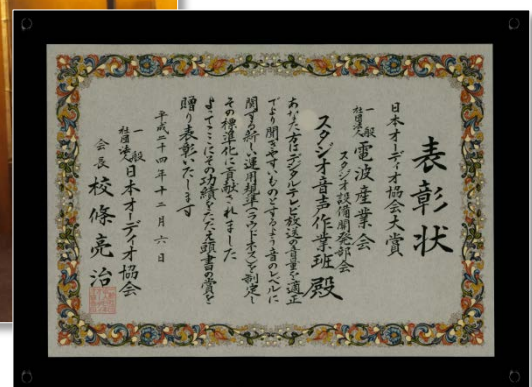 表彰状
日本オーディオ協会大賞
一般社団法人電波産業会
スタジオ設備開発部会
スタジオ音声作業班殿
あなた方はデジタルテレビ放送の音量を適正
でより聞きやすいものとするよう音のレベルに
関する新しい運用規準(ラウドネス)を制定し
その標準化に貢献されました
よってここにその功績をたたえ頭書の賞を
贈り表彰いたします
平成二十四年十二月六日
一般社団法人日本オーディオ協会
会長 校條亮治